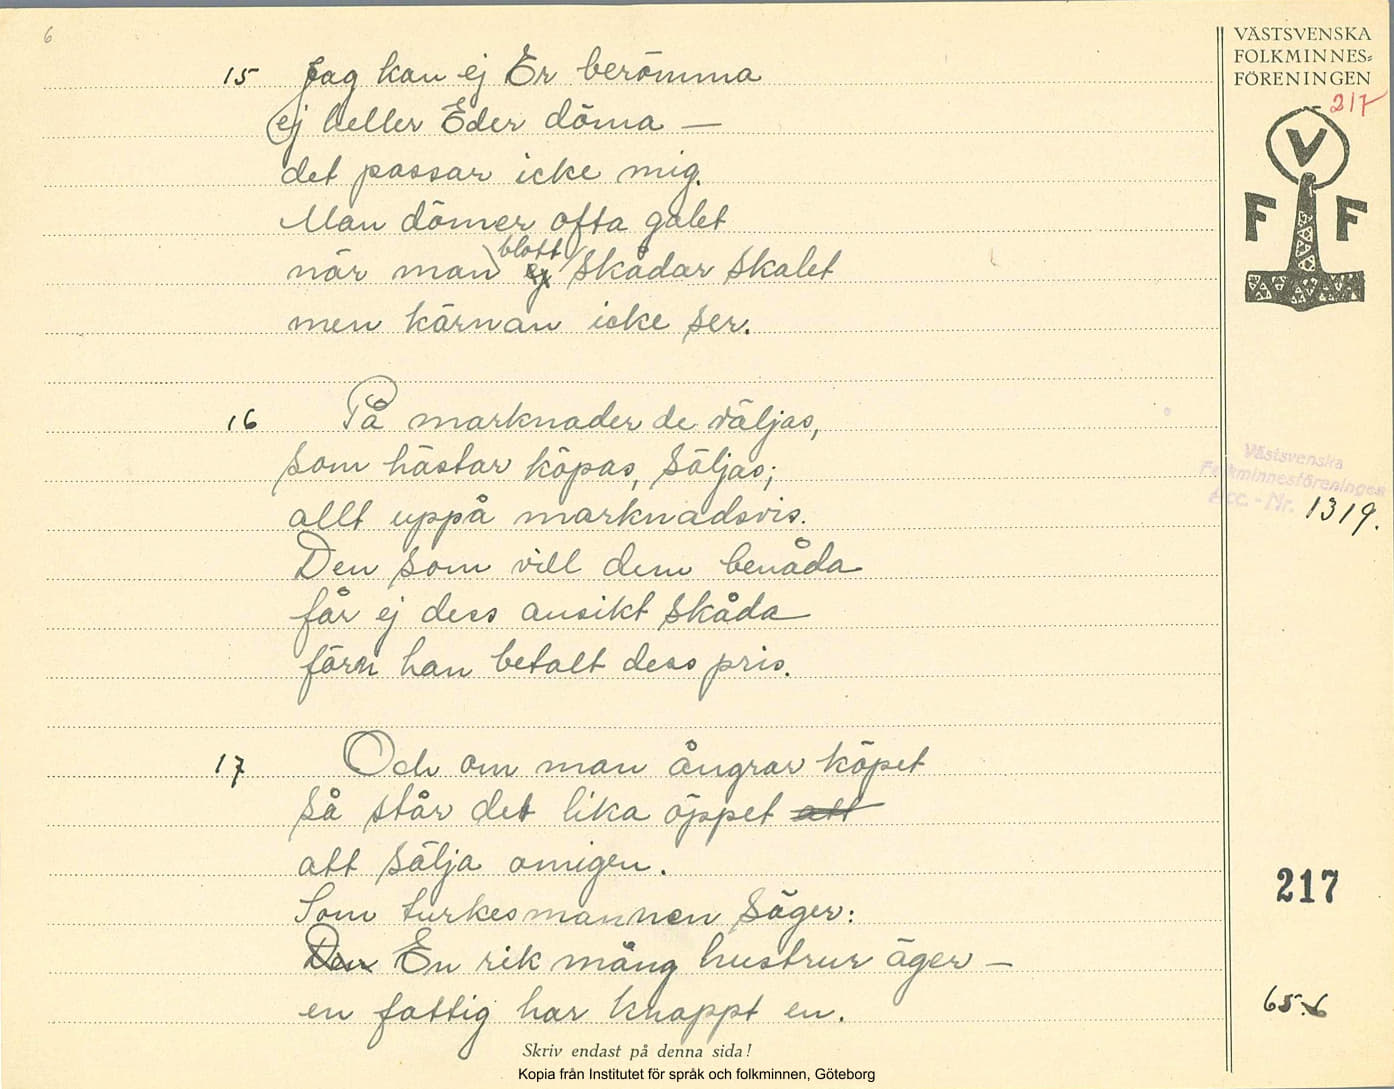 6
VÄSTSVENSKA
FOLKMINNES=
FÖRENINGEN
217
V
F F
15 Jag kan ej Er berömma
ej heller Eder döma —
det passar icke mig.
Man dömer ofta galet
när man blott ej skådar skalet
men kärnan icke ser.
16 På marknader de väljas,
som hästar köpas, säljas;
allt uppå marknadsvis.
Den som vill dem benåda
får ej dess ansikt skåda
förn han betalt dess pris.
Västsvenska
Folkminnesföreningen
Acc. - Nr. 1319.
17 Och om man ångrar köpet
så står det lika öppet att
att sälja omigen.
Som turkesmannen säger:
Den En rik mång hustrur äger —
en fattig har knappt en.
217
65.6
Skriv endast på denna sida!
Kopia från Institutet för språk och folkminnen, Göteborg